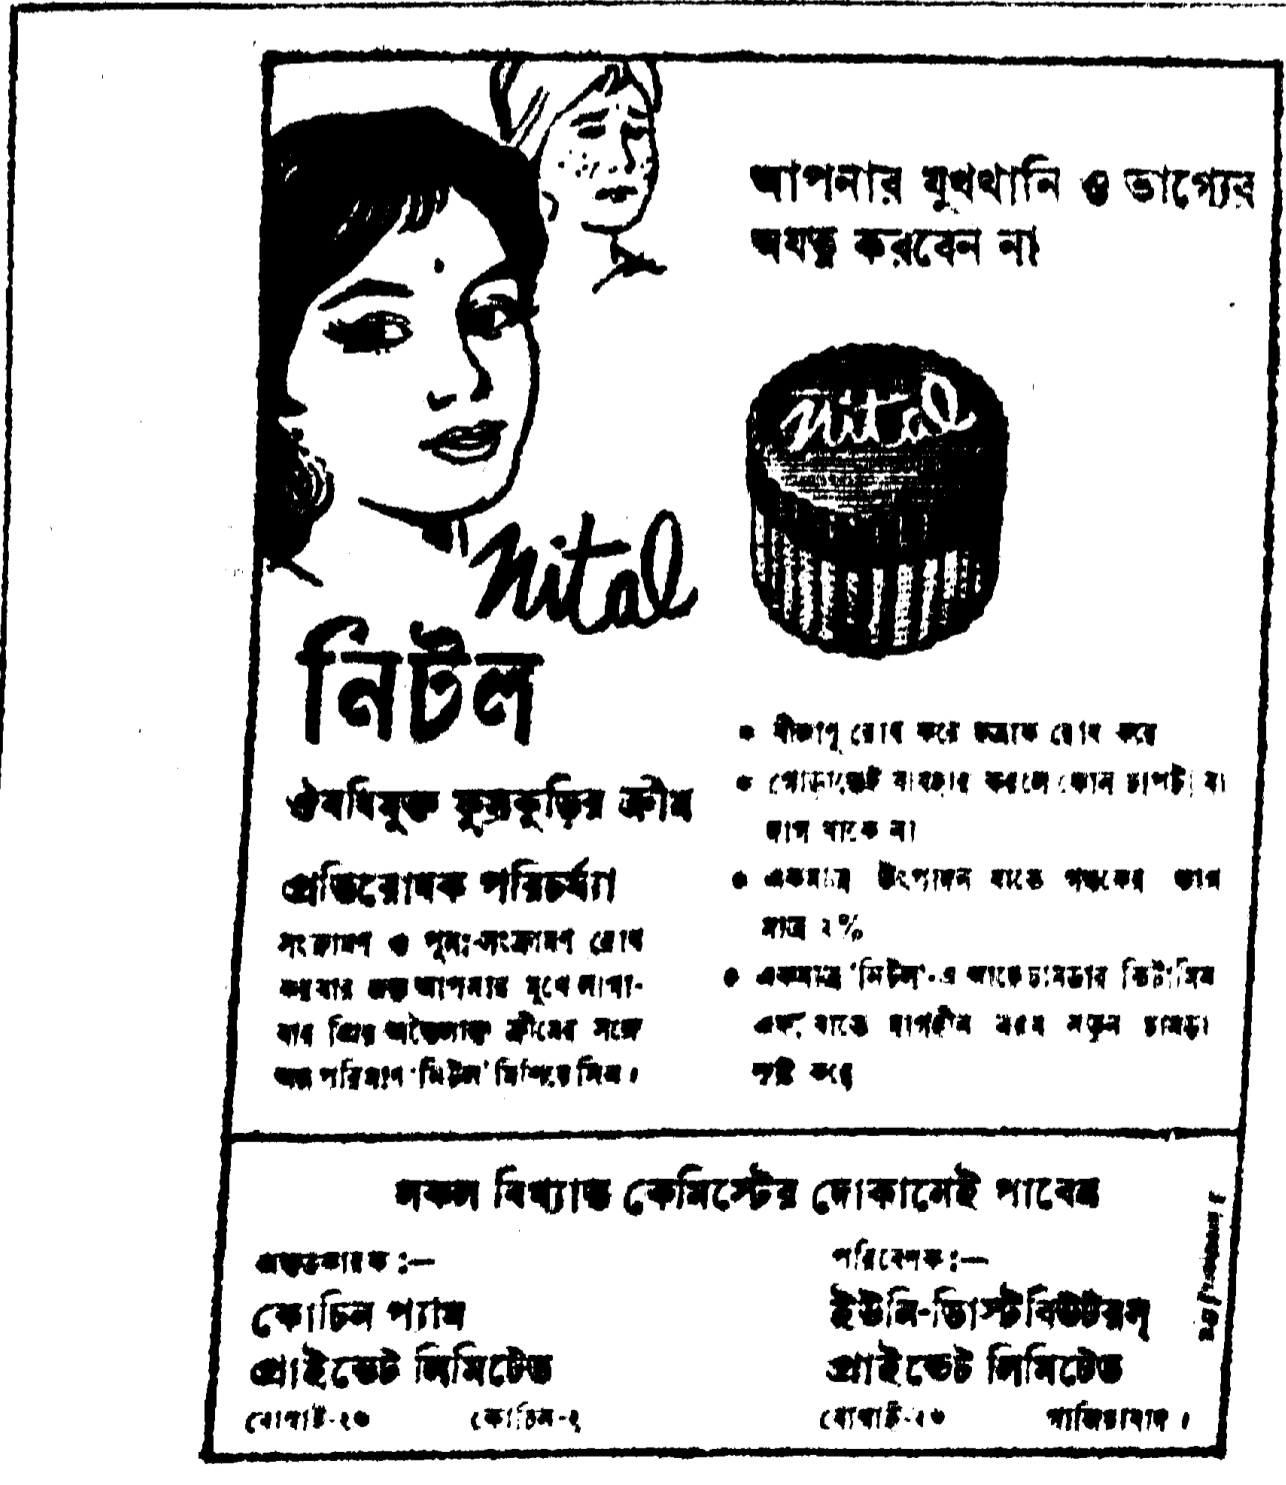 আপনার মুখখানি ও ভাগ্যের
অযত্ন করবেন না
Nital
Nital
নিটল
ঔষধিযুক্ত ফুস্কুড়ির ক্রীম
প্রতিরোধক পরিচর্য্যা
সংক্রামণ ও পুনঃ-সংক্রামণ রোধ
করবার জন্য আপনার মুখে লাগা-
বার প্রিয় অতৈলাক্ত ক্রীমের সঙ্গে
অল্প পরিমাণ 'নিটল' মিশিয়ে নিন।
• বীজাণু রোধ করে ছত্রাক রোধ করে
• গোড়াতেই ব্যবহার করলে কোন চাপটা বা
দাগ থাকে না
• একমাত্র উৎপাদন যাতে গন্ধকের ভাগ
মাত্র ২%
• একমাত্র 'নিটল'-এ আছে চামড়ার ভিটামিন
এফ, যাতে দাগহীন নরম নতুন চামড়া
সৃষ্টি করে
সকল বিখ্যাত কেমিস্টের দোকানেই পাবেন
প্রস্তুতকারক :—
কোচিন প্যাম
প্রাইভেট লিমিটেড
বোম্বাই-২৬ কোচিন-২
পরিবেশক :—
ইউনি-ডিস্ট্রিবিউটরস্
প্রাইভেট লিমিটেড
বোম্বাই-২৬